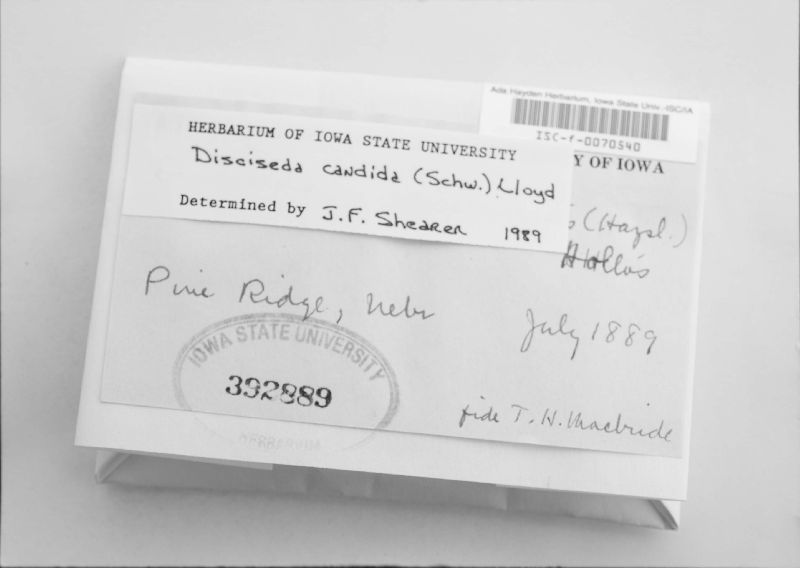 Ada Hayden Herbarium, Iowa State Univ.-ISC/IA
ISC-f-0070540
HERBARIUM OF IOWA STATE UNIVERSITY
Disciseda candida (Schw.) Lloyd
Determined by J.F. Shearer 1989
Y OF IOWA
(Hazsl.)
Hollós
Pine Ridge, Nebr
July 1889
IOWA STATE UNIVERSITY
392889
HERBARIUM
fide T. H. Macbride